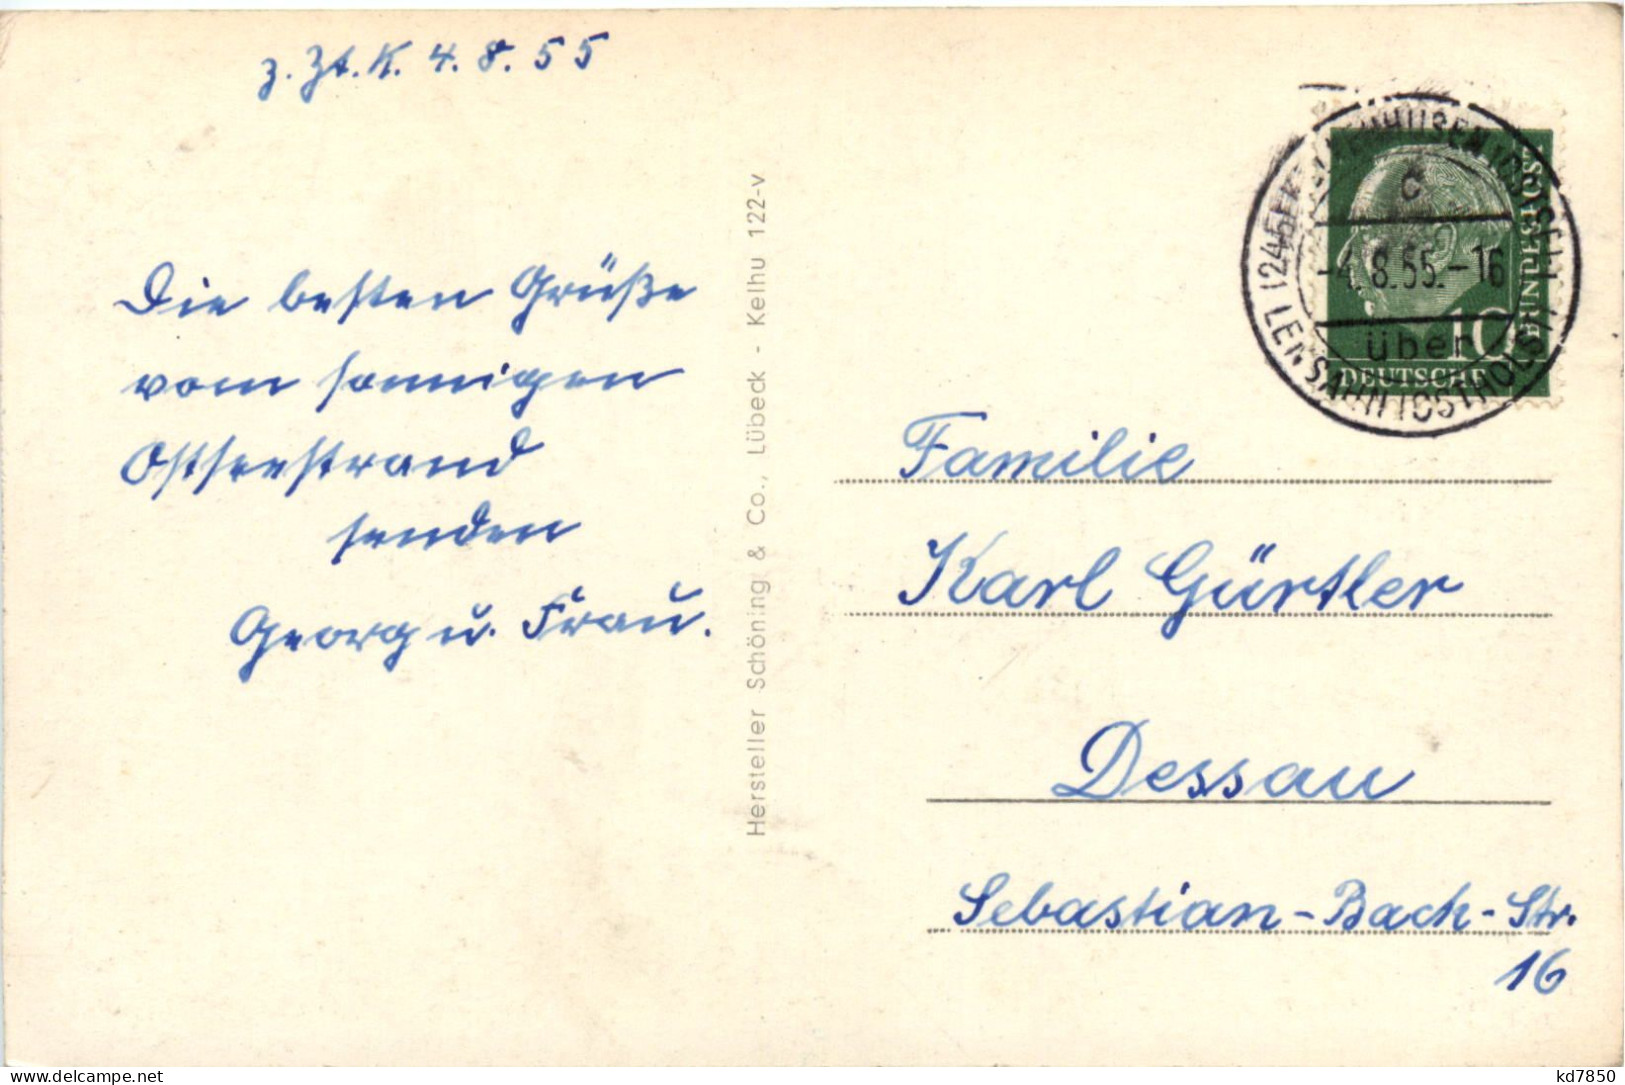 z. Zt. K. 4. 8. 55
Die besten Grüße
vom sonnigen
Ostseestrand
senden
Georg u. Frau.
Hersteller Schöning & Co., Lübeck - Kelhu 122-v
c
-4.8.55.-16
über
LENSAHN (OSTHOLST)
10
DEUTSCHE
BUNDESPOST
Familie
Karl Gürtler
Dessau
Sebastian-Bach-Str.
16
kd7850